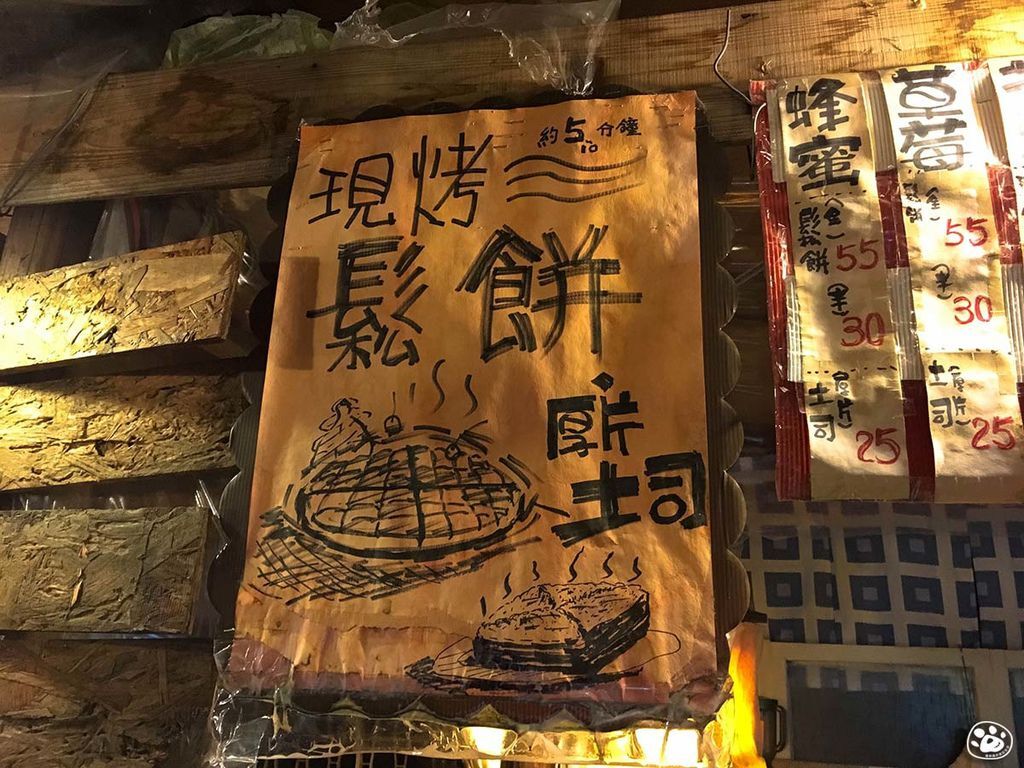 約5分鐘
10
現烤
鬆餅
厚片
土司
蜂蜜
鬆餅
(全) 55
(半) 30
厚片
土司 25
草莓
鬆餅
(全) 55
(半) 30
厚片
土司 25